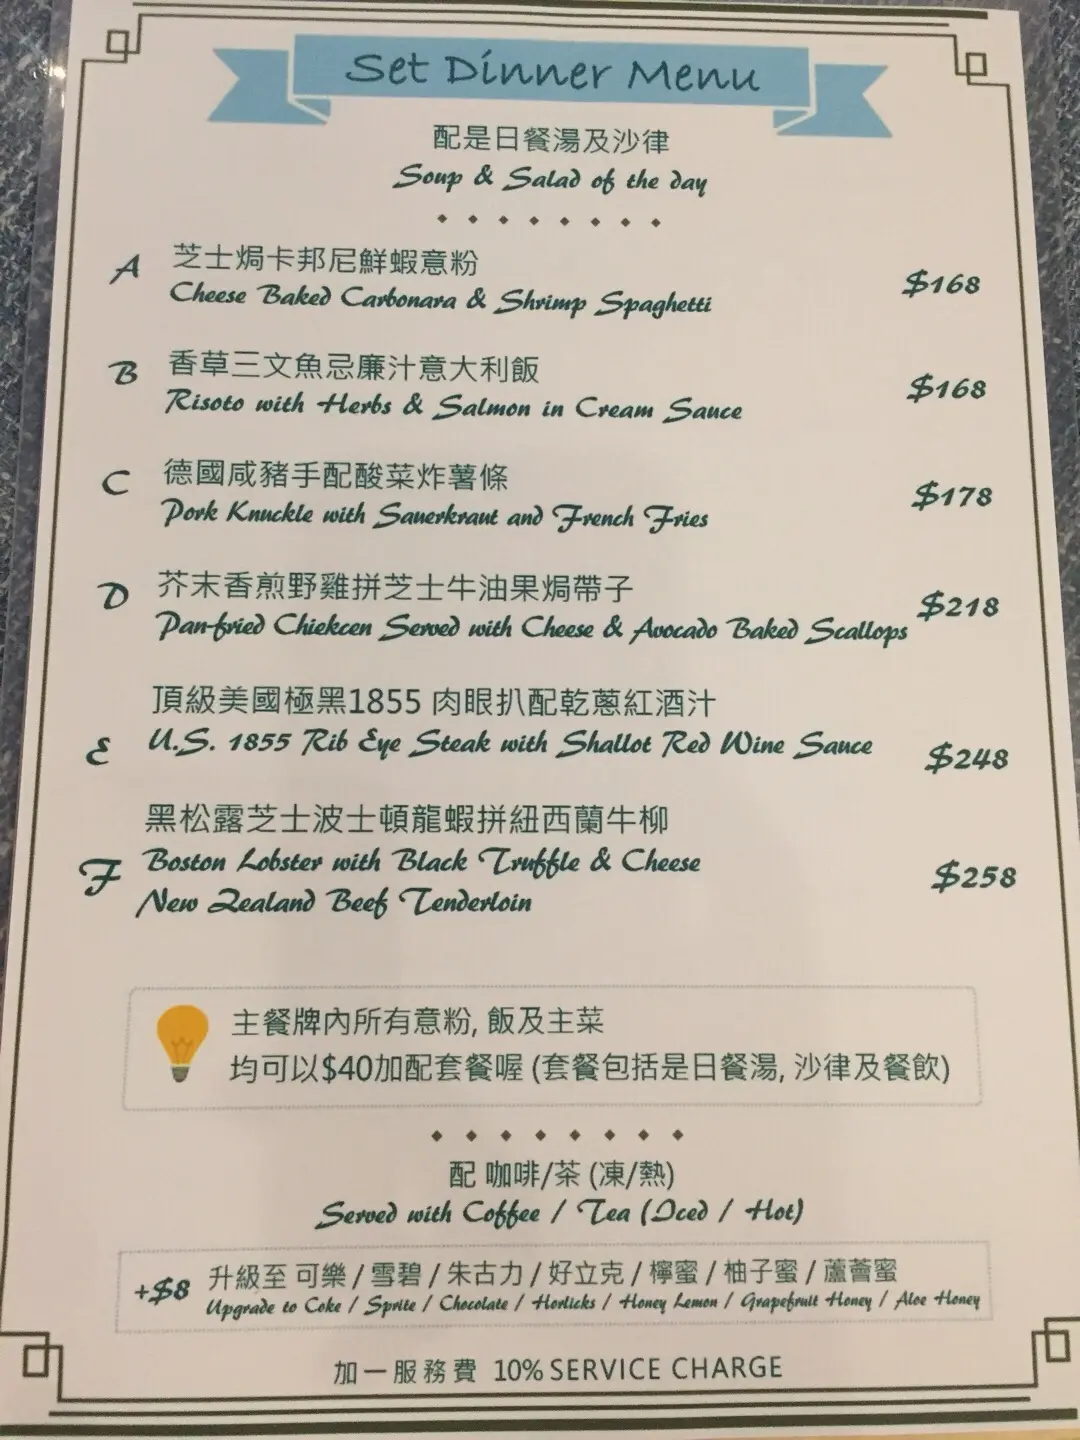 Set Dinner Menu
配是日餐湯及沙律
Soup & Salad of the day
A
芝士焗卡邦尼鮮蝦意粉
Cheese Baked Carbonara & Shrimp Spaghetti
$168
B
香草三文魚忌廉汁意大利飯
Risoto with Herbs & Salmon in Cream Sauce
$168
C
德國咸豬手配酸菜炸薯條
Pork Knuckle with Sauerkraut and French Fries
$178
D
芥末香煎野雞拼芝士牛油果焗帶子
Pan-fried Chiekcen Served with Cheese & Avocado Baked Scallops
$218
E
頂級美國極黑1855 肉眼扒配乾蔥紅酒汁
U.S. 1855 Rib Eye Steak with Shallot Red Wine Sauce
$248
F
黑松露芝士波士頓龍蝦拼紐西蘭牛柳
Boston Lobster with Black Truffle & Cheese
New Zealand Beef Tenderloin
$258
主餐牌內所有意粉, 飯及主菜
均可以$40加配套餐喔 (套餐包括是日餐湯, 沙律及餐飲)
配 咖啡/茶 (凍/熱)
Served with Coffee / Tea (Iced / Hot)
+$8
升級至 可樂 / 雪碧 / 朱古力 / 好立克 / 檸蜜 / 柚子蜜 / 蘆薈蜜
Upgrade to Coke / Sprite / Chocolate / Horlicks / Honey Lemon / Grapefruit Honey / Aloe Honey
加一服務費 10% SERVICE CHARGE